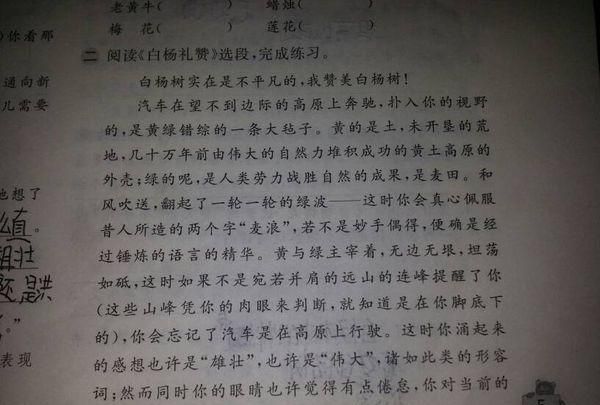 老黄牛(　　) 蜡烛(　　)
梅　花(　　) 莲花(　　)
二 阅读《白杨礼赞》选段,完成练习。
白杨树实在是不平凡的,我赞美白杨树!
汽车在望不到边际的高原上奔驰,扑入你的视野
的,是黄绿错综的一条大毡子。黄的是土,未开垦的荒
地,几十万年前由伟大的自然力堆积成功的黄土高原的
外壳;绿的呢,是人类劳力战胜自然的成果,是麦田。和
风吹送,翻起了一轮一轮的绿波——这时你会真心佩服
昔人所造的两个字“麦浪”,若不是妙手偶得,便确是经
过锤炼的语言的精华。黄与绿主宰着,无边无垠,坦荡
如砥,这时如果不是宛若并肩的远山的连峰提醒了你
(这些山峰凭你的肉眼来判断,就知道是在你脚底下
的),你会忘记了汽车是在高原上行驶。这时你涌起来
的感想也许是“雄壮”,也许是“伟大”,诸如此类的形容
词;然而同时你的眼睛也许觉得有点倦怠,你对当前的
)你看那
通向新
儿需要
也想了
直。
壮
是洪
。”
表现
5